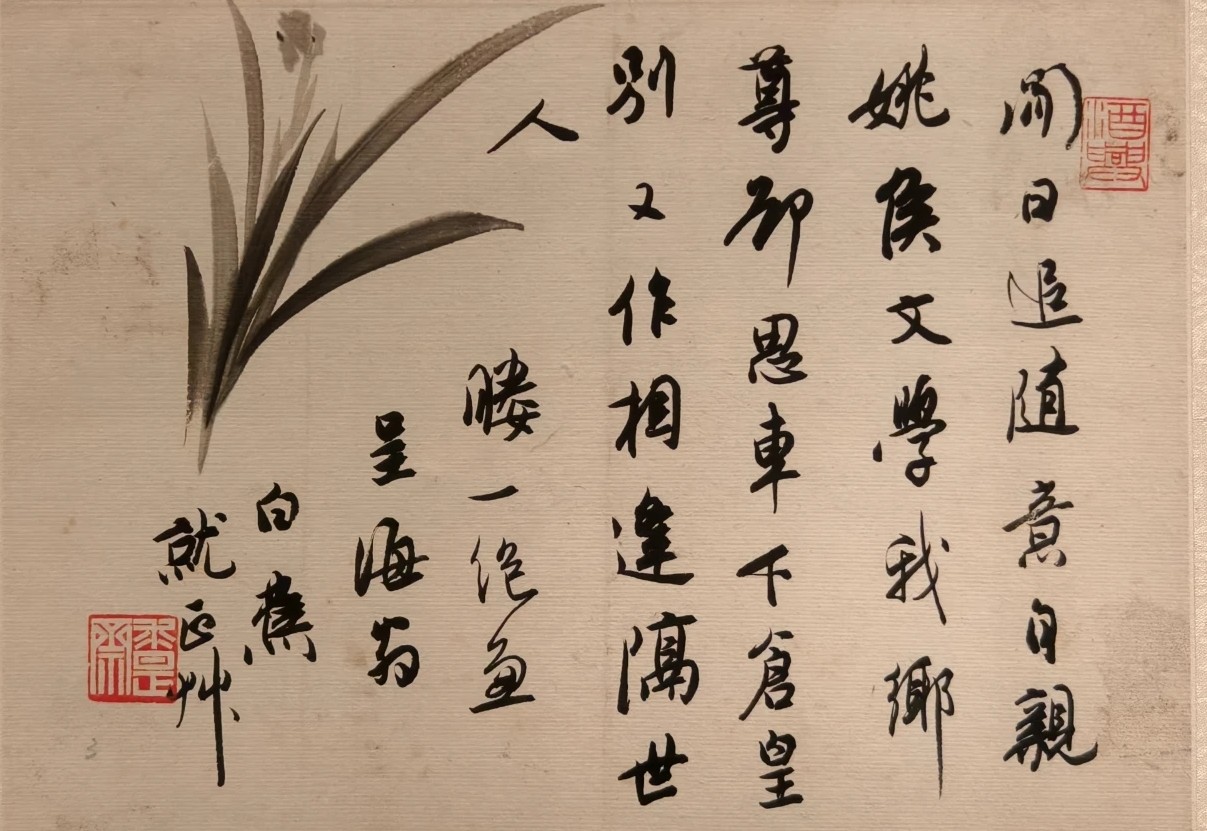 閒日追随意自親
姚侯文學我鄉
尊卻思車下倉皇
別又作相逢隔世
人
一絕兼
呈海翁
白蕉
就正艸